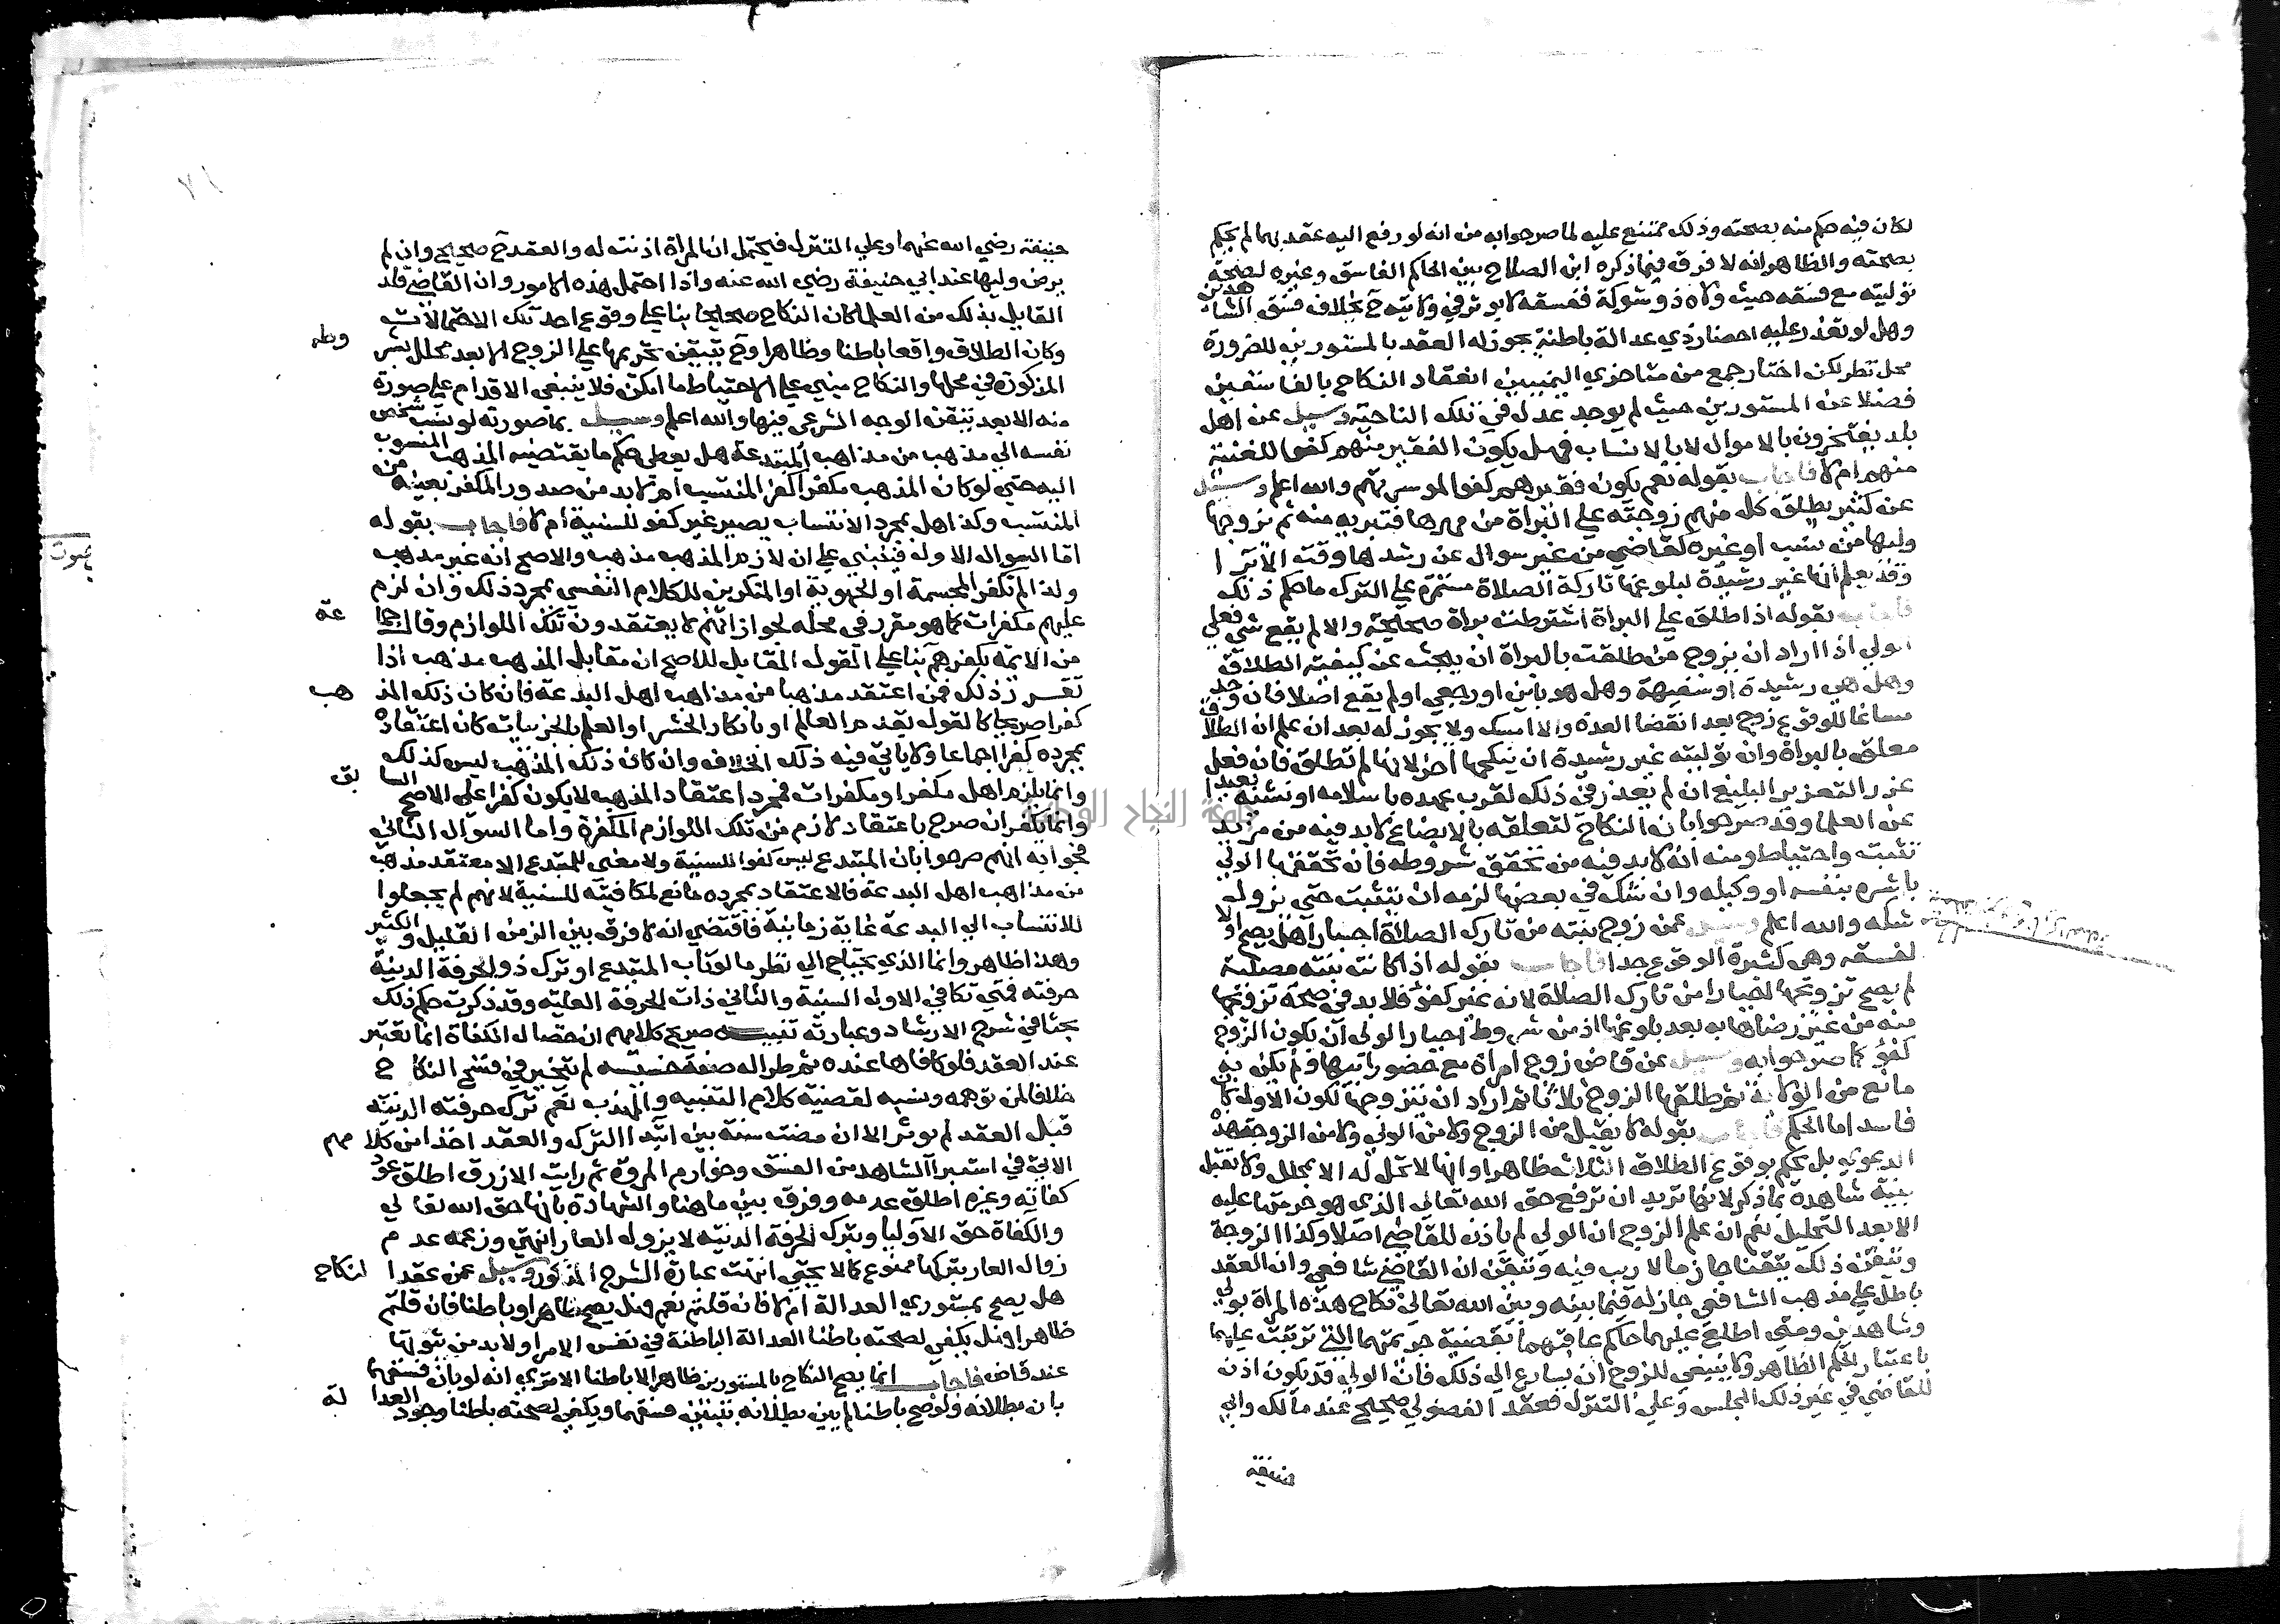 لكان فيه حكم منه بصحته وذلك ممتنع عليه لما صرحوا به من انه لو رفع اليه عقد بهما لم يحكم
بصحته والظاهر انه لا فرق فيما ذكره ابن الصلاح بين الحاكم الفاسق وغيره لصحة
توليته مع فسقه حيث ولاه ذو شوكة ففسقه لا يوثر في ولايته ح بخلاف فسق الشاهدين
وهل لو تعذر عليه احضار ذي عدالة باطنة يجوز له العقد بالمستورين للضرورة
محل نظر لكن اختار جمع من متاخري اليمنيين انعقاد النكاح بالفاسقين
فضلا عن المستورين حيث لم يوجد عدل في تلك الناحية وسيل عن اهل
بلد يفتخرون بالاموال لا بالانساب فهل يكون الفقير منهم كفوا للغنية
منهم ام لا فاجاب بقوله نعم يكون فقيرهم كفوا لموسرتهم والله اعلم وسيل
عن كثير يطلق كل منهم زوجته على البراة من مهرها فتبريه منه ثم يزوجها
وليها من نسب او غيره كقاضي من غير سوال عن رشدها وقت الابرا
وقد يعلم انها غير رشيدة لبلوغها تاركة الصلاة مستمرة على الترك ما حكم ذلك
فاجاب بقوله اذا طلق على البراة اشترطت براة صحيحة والا لم يقع شي فعلى
الولي اذا اراد ان يزوج من طلقت بالبراة ان يبحث عن كيفية الطلاق
وهل هي رشيدة او سفيهة وهل هو باين او رجعي او لم يقع اصلا فان وجد
مساغا للوقوع زوج بعد انقضا العدة والا امسك ولا يجوز له بعد ان علم ان الطلاق
معلق بالبراة وان موليته غير رشيدة ان ينكحها اخر لانها لم تطلق فان فعل
عزر التعزير البليغ ان لم يعذر في ذلك لقرب عهده باسلامه او نشئه بعيدا
عن العلما وقد صرحوا بان النكاح لتعلقه بالابضاع لا بد فيه من مزيد
تثبت واحتياط ومنه انه لا بد فيه من تحقق شروطه فان تحققها الولي
باشره بنفسه او وكيله وان شك في بعضها لزمه ان يتثبت حتى يزول
شكه والله اعلم وسيل عمن زوج بنته من تارك الصلاة اجبارا هل يصح او لا
لفسقه وهي كثيرة الوقوع جدا فاجاب بقوله اذا كانت بنته مصلية
لم يصح تزويجها اجبارا من تارك الصلاة لانه غير كفؤ فلا بد في صحة تزوجها
منه من غير رضاها به بعد بلوغها اذ من شروط اجبار الولي ان يكون الزوج
كفؤ كما صرحوا به وسيل عن قاض زوج امراة مع حضور ابيها ولم يكن به
مانع من الولاية ثم طلقها الزوج ثلاثا ثم اراد ان يتزوجها لكون الاول كان
فاسدا ما الحكم فاجاب بقوله لا يقبل من الزوج ولا من الولي ولا من الزوجة هذه
الدعوى بل يحكم بوقوع الطلاق الثلاث ظاهرا وانها لا تحل له الا بمحلل ولا تقبل
بينة شاهدة بما ذكر لانها تريد ان ترفع حق الله تعالى الذي هو حرمتها عليه
الا بعد التحليل نعم ان علم الزوج ان الولي لم ياذن للقاضي اصلا وكذا الزوجة
وتيقن ذلك يتقنا جازما لا ريب فيه وتيقن ان القاضي شافعي وان العقد
باطل على مذهب الشافعي جاز له فيما بينه وبين الله تعالى نكاح هذه المراة بولي
وشاهدين ومتى اطلع عليهما حاكم عاقبهما بقضية جريمتهما التي ترتبت عليهما
باعتبار الحكم الظاهر ولا ينبغي للزوج ان يسارع الى ذلك فان الولي قد يكون اذن
للقاضي في غير ذلك المجلس وعلى التنزل فعقد الفضولي صحيح عند مالك وابي
حنيفة
حنيفة رضي الله عنهما وعلى التنزل فيحتمل ان المراة اذنت له والعقد ح صحيح وان لم
يرض وليها عند ابي حنيفة رضي الله عنه واذا احتمل هذه الامور وان القاضي قلد
القايل بذلك من العلما كان النكاح صحيحا بنا على وقوع احد تلك الاحتمالات
وكان الطلاق واقعا باطنا وظاهرا وح يتيقن تحريمها على الزوج الا بعد محلل بشروطه
المذكورة في محلها والنكاح مبني على الاحتياط ما امكن فلا ينبغي الاقدام على صورة
منه الا بعد تيقن الوجه الشرعي فيها والله اعلم وسيل بما صورته لو نسب شخص
نفسه الى مذهب من مذاهب المبتدعة هل يعطى حكم ما يقتضيه المذهب المنسوب
اليه حتى لو كان المذهب مكفرا كفر المنتسب ام لا بد من صدور المكفر بعينه من
المنتسب وكذا هل بمجرد الانتساب يصير غير كفو للسنية ام لا فاجاب بقوله
اما السوال الاول فينبني على ان لازم المذهب مذهب والاصح انه غير مذهب
ولذا لم نكفر المجسمة او الجهوية او المنكرين للكلام النفسي بمجرد ذلك وان لزم
عليهم مكفرات كما هو مقرر في محله لجواز انهم لا يعتقدون تلك اللوازم وقال جماعة
من الايمة بكفرهم بنا على القول المقابل للاصح ان مقابل المذهب مذهب اذا
تقرر ذلك فمن اعتقد مذهبا من مذاهب اهل البدعة فان كان ذلك المذهب
كفرا صريحا كالقول بقدم العالم او بانكار الحشر او العلم بالجزييات كان اعتقاده
بمجرده كفرا اجماعا ولا ياتي فيه ذلك الخلاف وان كان ذلك المذهب ليس كذلك
وانما يلزم اهل مكفر او مكفرات فمجرد اعتقاد المذهب لا يكون كفرا على الاصح السابق
وانما يكفر ان صرح باعتقاد لازم من تلك اللوازم المكفرة واما السوال الثاني
فجوابه انهم صرحوا بان المبتدع ليس كفوا للسنية ولا معنى للمبتدع الا معتقد مذهب
من مذاهب اهل البدعة فالاعتقاد بمجرده مانع لمكافيته للسنية لانهم لم يجعلوا
للانتساب الى البدعة غاية زمانية فاقتضى انه لا فرق بين الزمن القليل والكثير
وهذا ظاهر وانما الذي يحتاج الى نظر ما لو تاب المبتدع او ترك ذو الحرفة الدنية
حرفته فمتى تكافي الاول السنية والثاني ذات الحرفة العلية وقد ذكرت حكم ذلك
بحثا في شرح الارشاد وعبارته تنبيه صريح كلامهم ان خصال الكفاة انما تعتبر
عند العقد فلو كافاها عنده ثم طرا له صفة خسيسة لم يتخير في فسخ النكاح
خلافا لمن توهمه ونسبه لقضية كلام التنبيه والمهذب نعم ترك حرفته الدنية
قبل العقد لم يوثر الا ان مضت سنة بين ابتدا الترك والعقد اخذا من كلامهم
الاتي في استبرا الشاهد من الفسق وخوارم المروة ثم رايت الازرق اطلق عود
كفاته وغيره اطلق عدمه وفرق بين ما هنا والشهادة بانها حق الله تعالى
والكفاة حق الاوليا وبترك الحرفة الدنية لا يزول العار انتهى وزعمه عدم
زوال العار بتركها ممنوع كما لا يخفى انتهت عبارة الشرح المذكور وسيل عمن عقد النكاح
هل يصح بمستوري العدالة ام لا فان قلتم نعم فهل يصح ظاهرا وباطنا فان قلتم
ظاهرا فهل يكفي لصحته باطنا العدالة الباطنة في نفس الامر او لا بد من ثبوتها
عند قاض فاجاب انما يصح النكاح بالمستورين ظاهرا لا باطنا الا ترى انه لو بان فسقهما
بان بطلانه ولو صح باطنا لم يبن بطلانه بتبين فسقهما ويكفي لصحته باطنا وجود العدالة
جامعة النجاح الوطنية